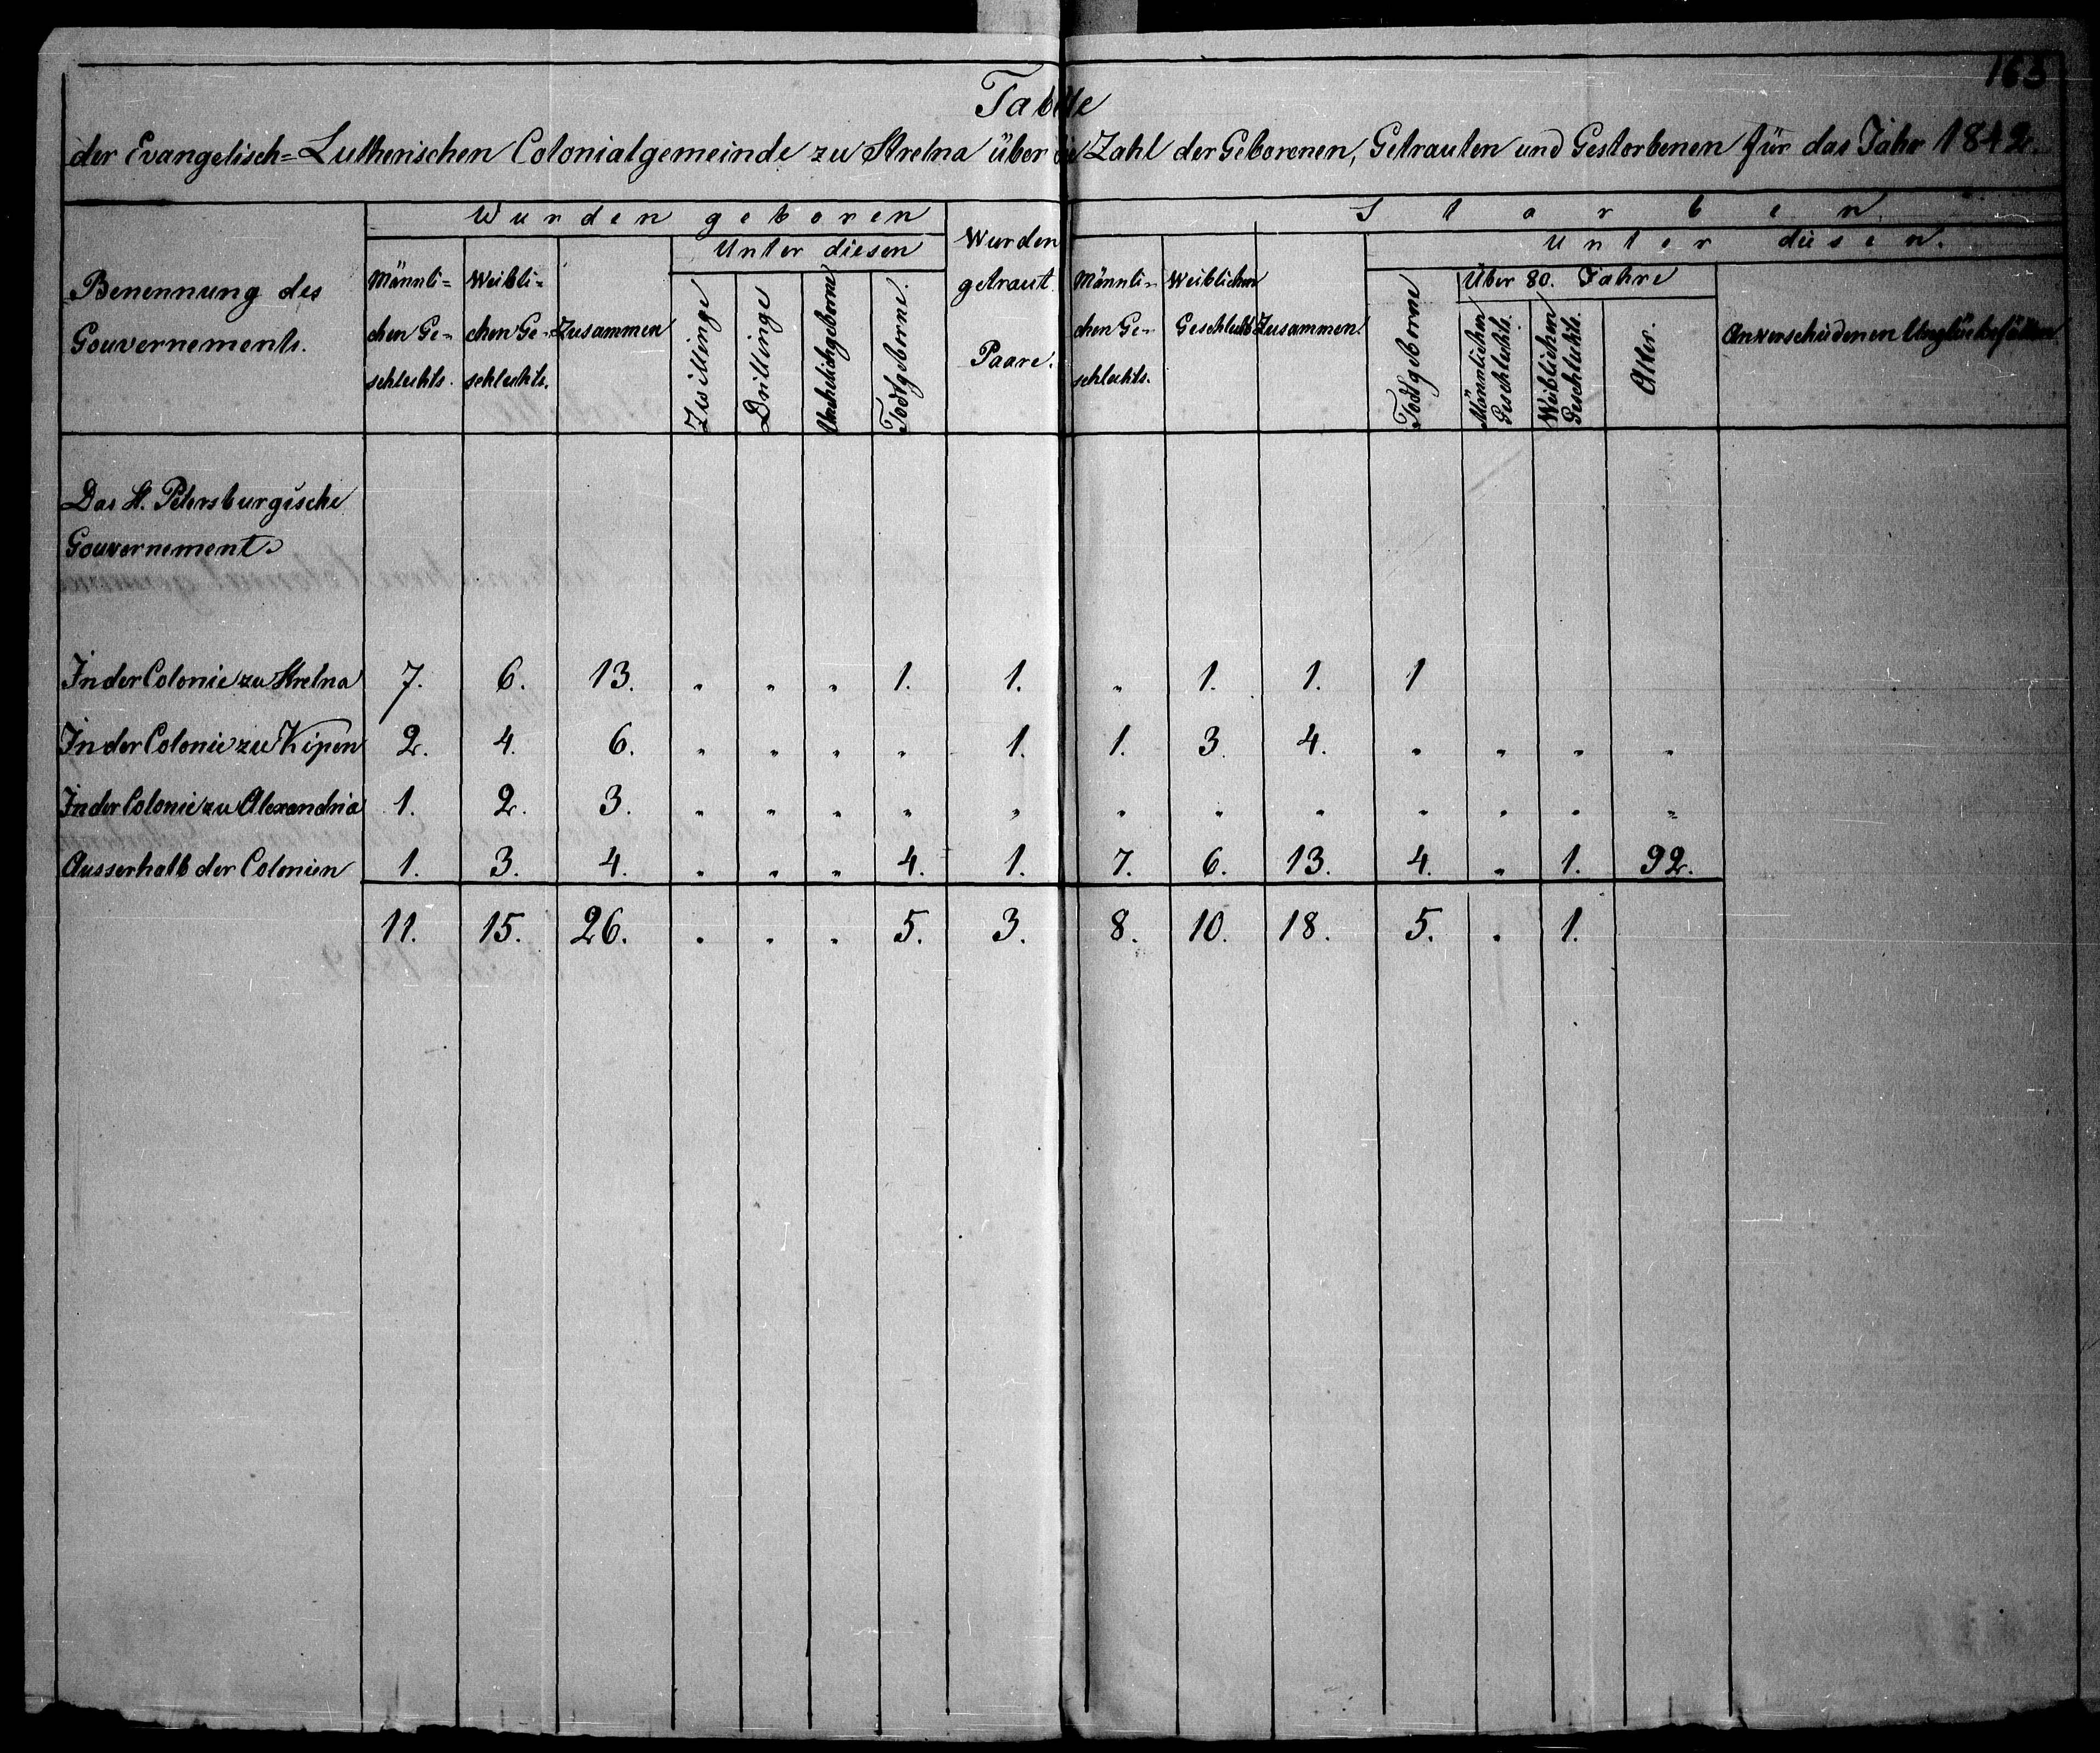 163
Tabelle
der Evangelisch=Lutherischen Colonialgemeinde zu Strelna über die Zahl der Geborenen, Getrauten und Gestorbenen für das Jahr 1842.
Benennung des
Gouvernements.
Wurden geboren
Männli=
chen Ge=
schlechts.
Weibli=
chen Ge=
schlechts.
Zusammen
Unter diesen
Zwillinge
Drillinge
Unehelichgeborne
Todtgeborne.
Wurden
getraut
Paare.
Starben
Männli=
chen Ge=
schlechts.
Weiblichen
Geschlechts
Zusammen.
Unter diesen.
Todtgeborne
Über 80. Jahre
Männlichen
Geschlechts.
Weiblichen
Geschlechts.
Alter.
An verschiedenen Unglücksfällen
Das St. Petersburgische
Gouvernement.
In der Colonie zu Strelna 7. 6. 13. " " " 1. 1. " 1. 1. 1
In der Colonie zu Kipen 2. 4. 6. " " " " 1. 1. 3. 4. " " " "
In der Colonie zu Alexandria 1. 2. 3. " " " " " " " " " " " "
Ausserhalb der Colonien 1. 3. 4. " " " 4. 1. 7. 6. 13. 4. " 1. 92.
11. 15. 26. " " " 5. 3. 8. 10. 18. 5. " 1.